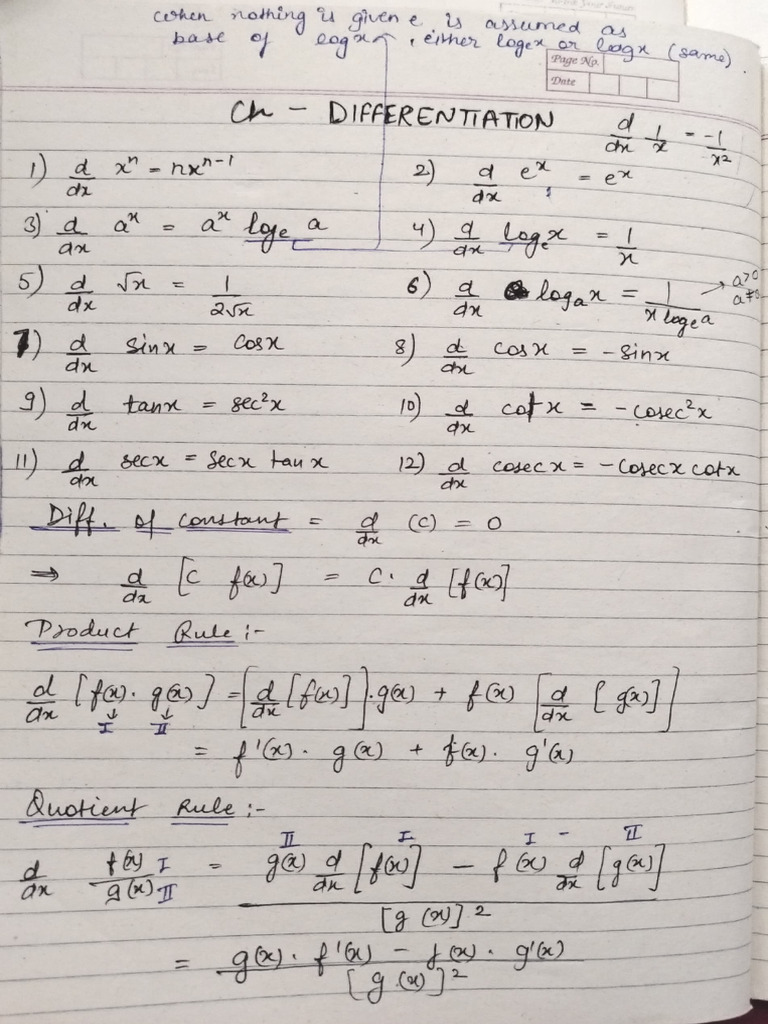 when nothing is given e is assumed as
base of logx, either logex or logx (same).
Page No.
Date
Ch - DIFFERENTIATION
d/dx 1/x = -1/x²
1) d/dx xⁿ = nxⁿ⁻¹ 2) d/dx eˣ = eˣ
3) d/dx aˣ = aˣ logₑ a 4) d/dx logₑx = 1/x
5) d/dx √x = 1/2√x 6) d/dx logₐx = 1/(x logₑa) → a>0
7) d/dx sinx = cosx 8) d/dx cosx = -sinx
9) d/dx tanx = sec²x 10) d/dx cotx = -cosec²x
11) d/dx secx = secx tanx 12) d/dx cosecx = -cosecx cotx
Diff. of constant = d/dx (c) = 0
⇒ d/dx [c f(x)] = c. d/dx [f(x)]
Product Rule :-
d/dx [f(x). g(x)] = [d/dx [f(x)]].g(x) + f(x) [d/dx [g(x)]]
I II
= f'(x). g(x) + f(x). g'(x)
Quotient Rule :-
II I I - II
d/dx f(x) I / g(x) II = g(x) d/dx [f(x)] - f(x) d/dx [g(x)] / [g(x)]²
= g(x). f'(x) - f(x). g'(x) / [g(x)]²